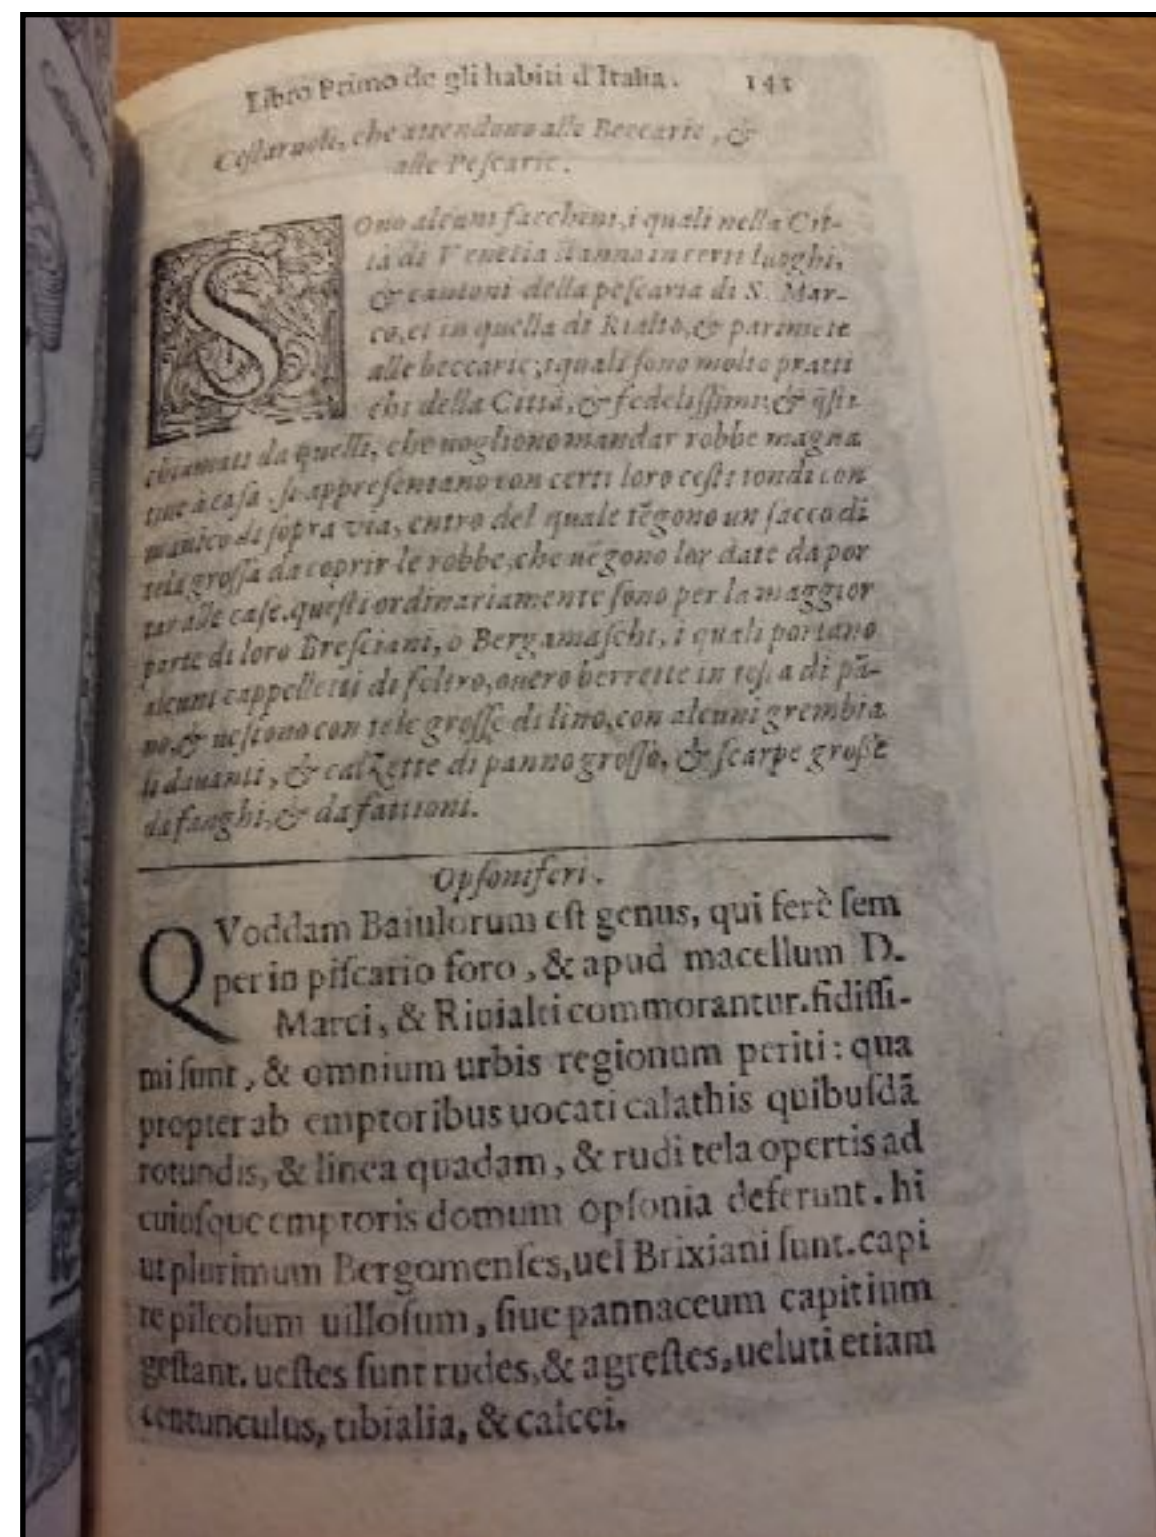 Libro Primo de gli habiti d'Italia. 143
Cestaruoli, che attendono alle Beccarie, &
alle Pescarie.
SOno alcuni facchini, i quali nella Cit-
tà di Venetia stanno in certi luoghi,
& cantoni della pescaria di S. Mar-
co, et in quella di Rialto, & parimẽte
alle beccarie; i quali sono molto pratti
chi della Città, & fedelissimi; & q̃sti
chiamati da quelli, che uogliono mandar robbe magna
tiue à casa, si appresentano con certi loro cesti tondi con
manico di sopra via, entro del quale tẽgono un sacco di
tela grossa da coprir le robbe, che uẽgono lor date da por
tar alle case. questi ordinariamente sono per la maggior
parte di loro Bresciani, o Bergamaschi, i quali portano
alcuni cappelletti di feltro, ouero berrette in testa di pã-
no, & uestono con tele grosse di lino, con alcuni grembia
li dauanti, & calzette di panno grosso, & scarpe grosse
da fanghi, & da fattioni.
Opsoniferi.
QVoddam Baiulorum est genus, qui ferè sem
per in piscario foro, & apud macellum D.
Marci, & Riuialti commorantur. fidissi-
mi sunt, & omnium urbis regionum periti: qua
propter ab emptoribus uocati calathis quibusdã
rotundis, & linea quadam, & rudi tela opertis ad
cuiusque emptoris domum opsonia deferunt. hi
ut plurimum Bergomenses, uel Brixiani sunt. capi
te pileolum uillosum, siue pannaceum capitium
gestant. uestes sunt rudes, & agrestes, ueluti etiam
centunculus, tibialia, & calcei.